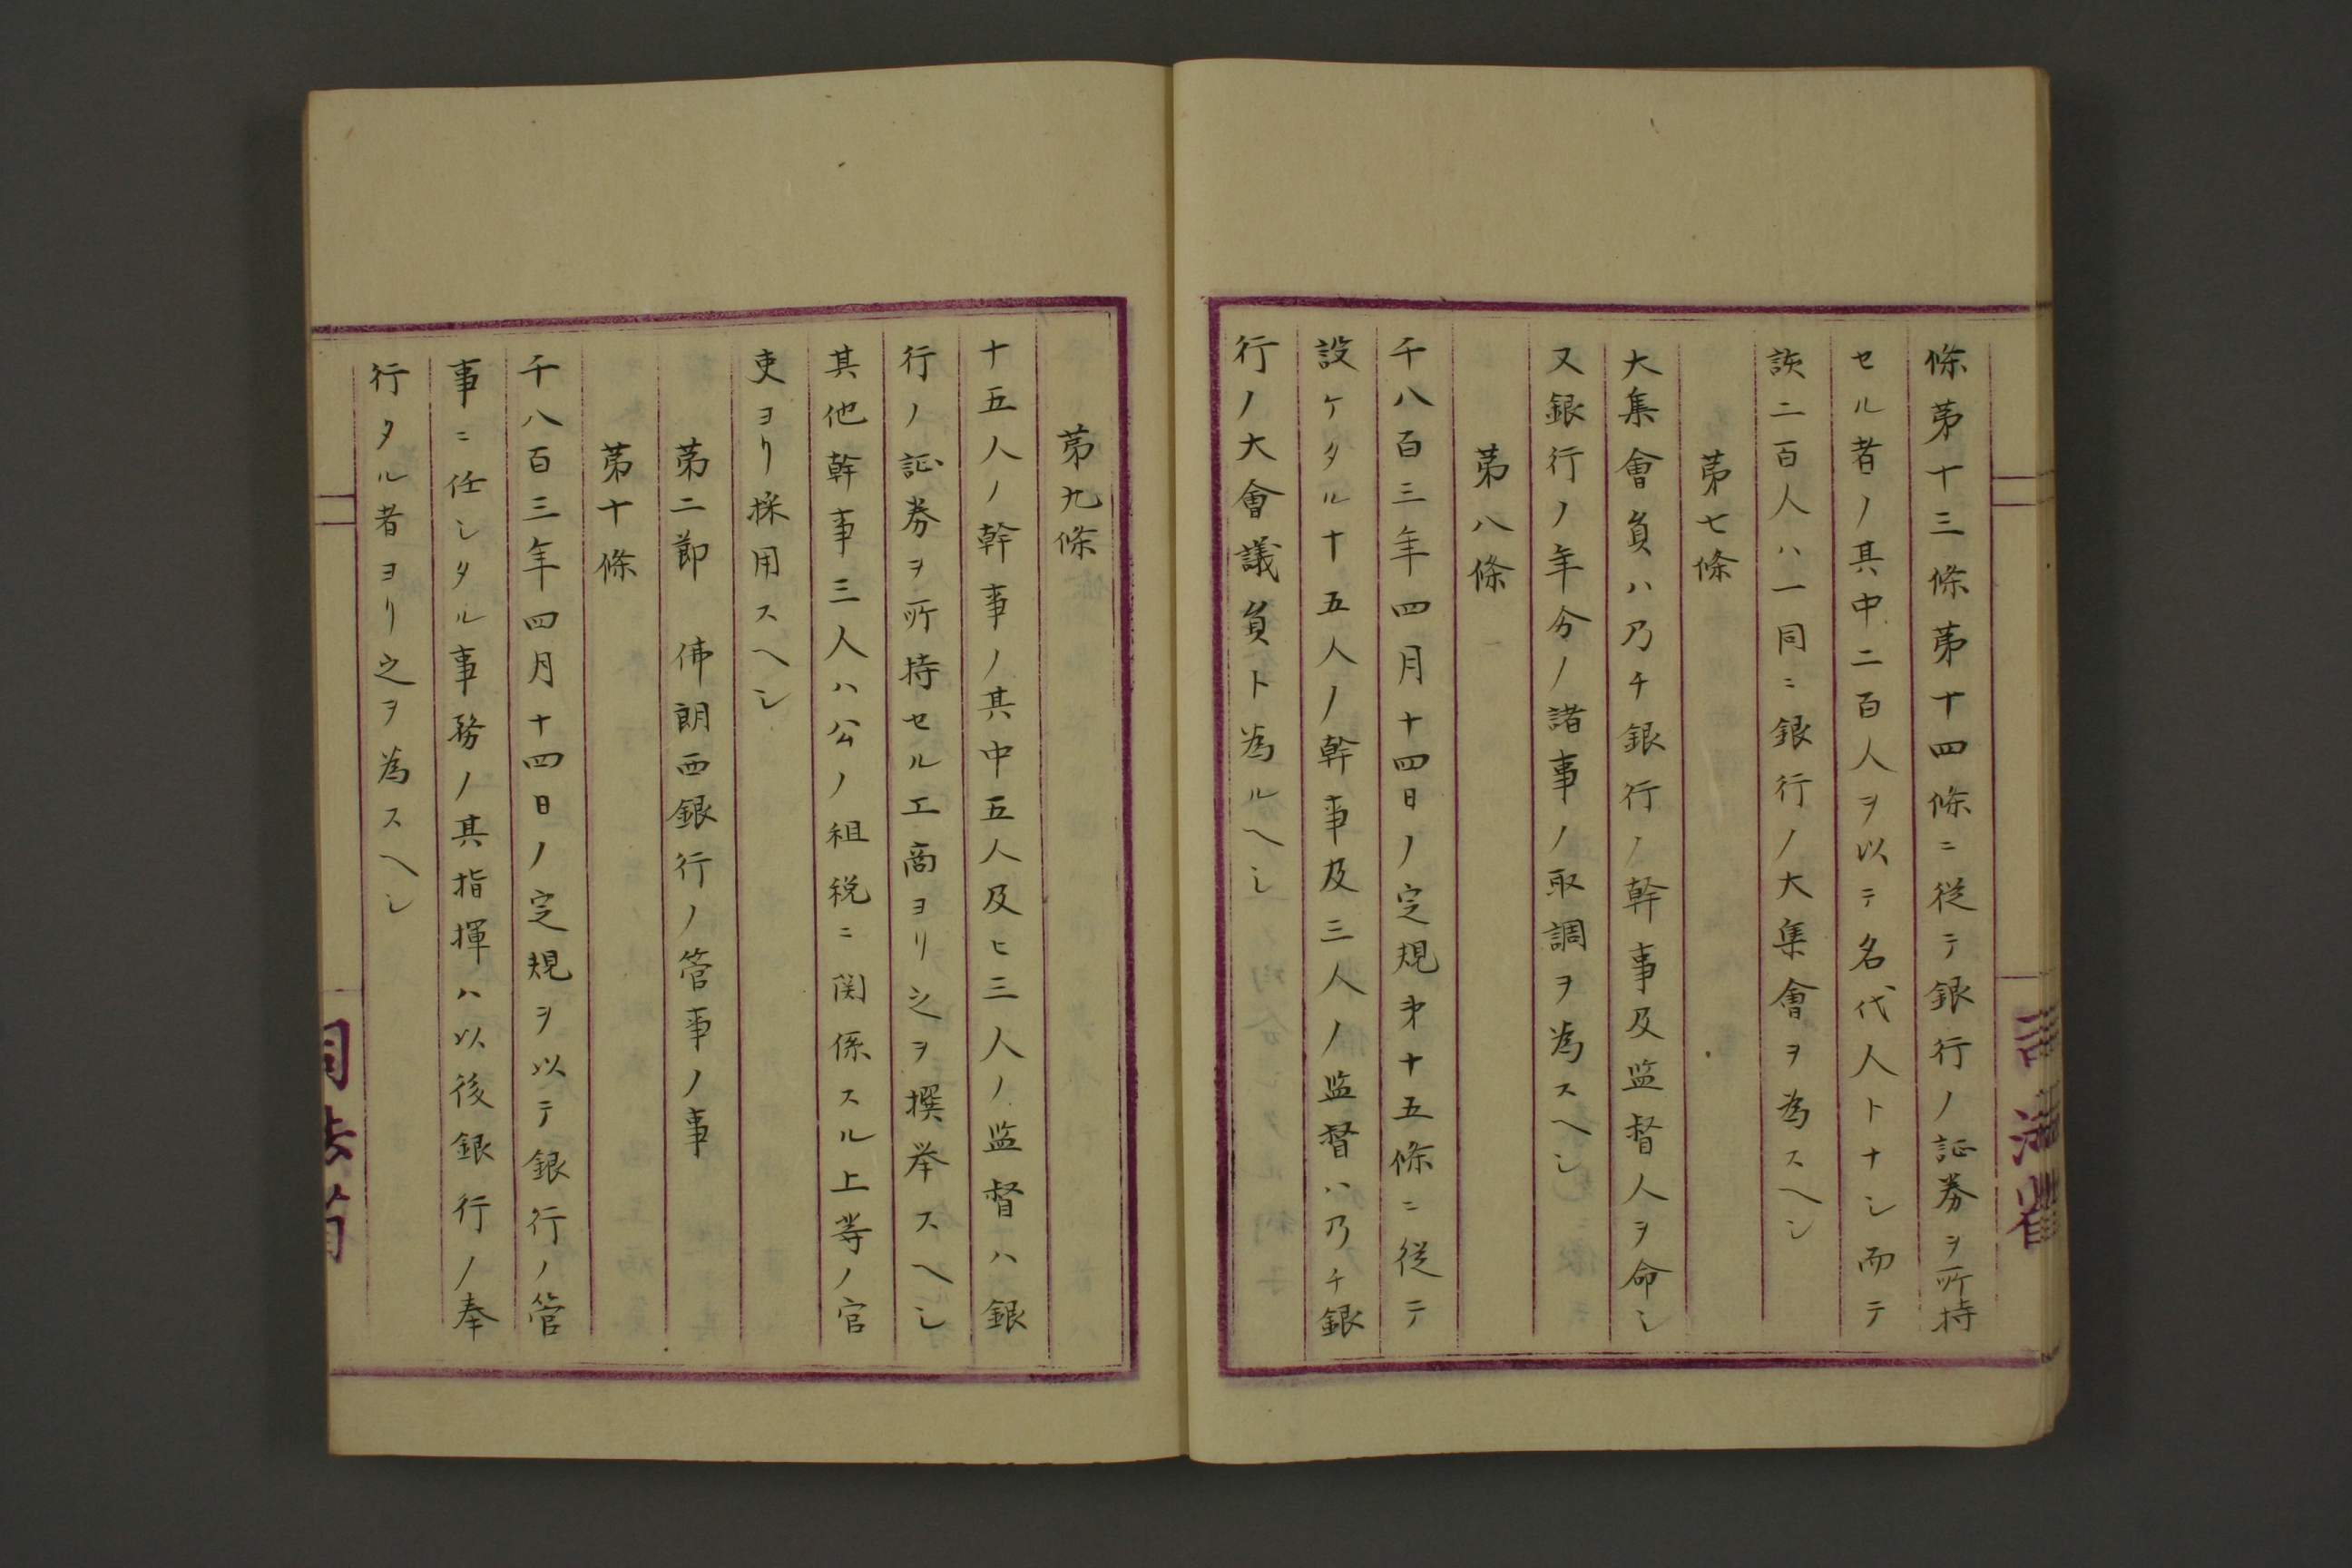 條第十三條第十四條ニ従テ銀行ノ証券ヲ所持
セル者ノ其中二百人ヲ以テ名代人トナシ而テ
該二百人ハ一同ニ銀行ノ大集會ヲ為スヘシ
第七條
大集會員ハ乃チ銀行ノ幹事及监督人ヲ命シ
又銀行ノ年分ノ諸事ノ取調ヲ為スヘシ
第八條
千八百三年四月十四日ノ定規第十五條ニ従テ
設ケタル十五人ノ幹事及三人ノ监督ハ乃チ銀
行ノ大會議員ト為ルヘシ
第九條
十五人ノ幹事ノ其中五人及ヒ三人ノ监督ハ銀
行ノ証券ヲ所持セル工商ヨリ之ヲ撰挙スヘシ
其他幹事三人ハ公ノ租税ニ関係スル上等ノ官
吏ヨリ採用スヘシ
第二節 佛朗西銀行ノ管事ノ事
第十條
千八百三年四月十四日ノ定規ヲ以テ銀行ノ管
事ニ任シタル事務ノ其指揮ハ以後銀行ノ奉
行タル者ヨリ之ヲ為スヘシ
司法省